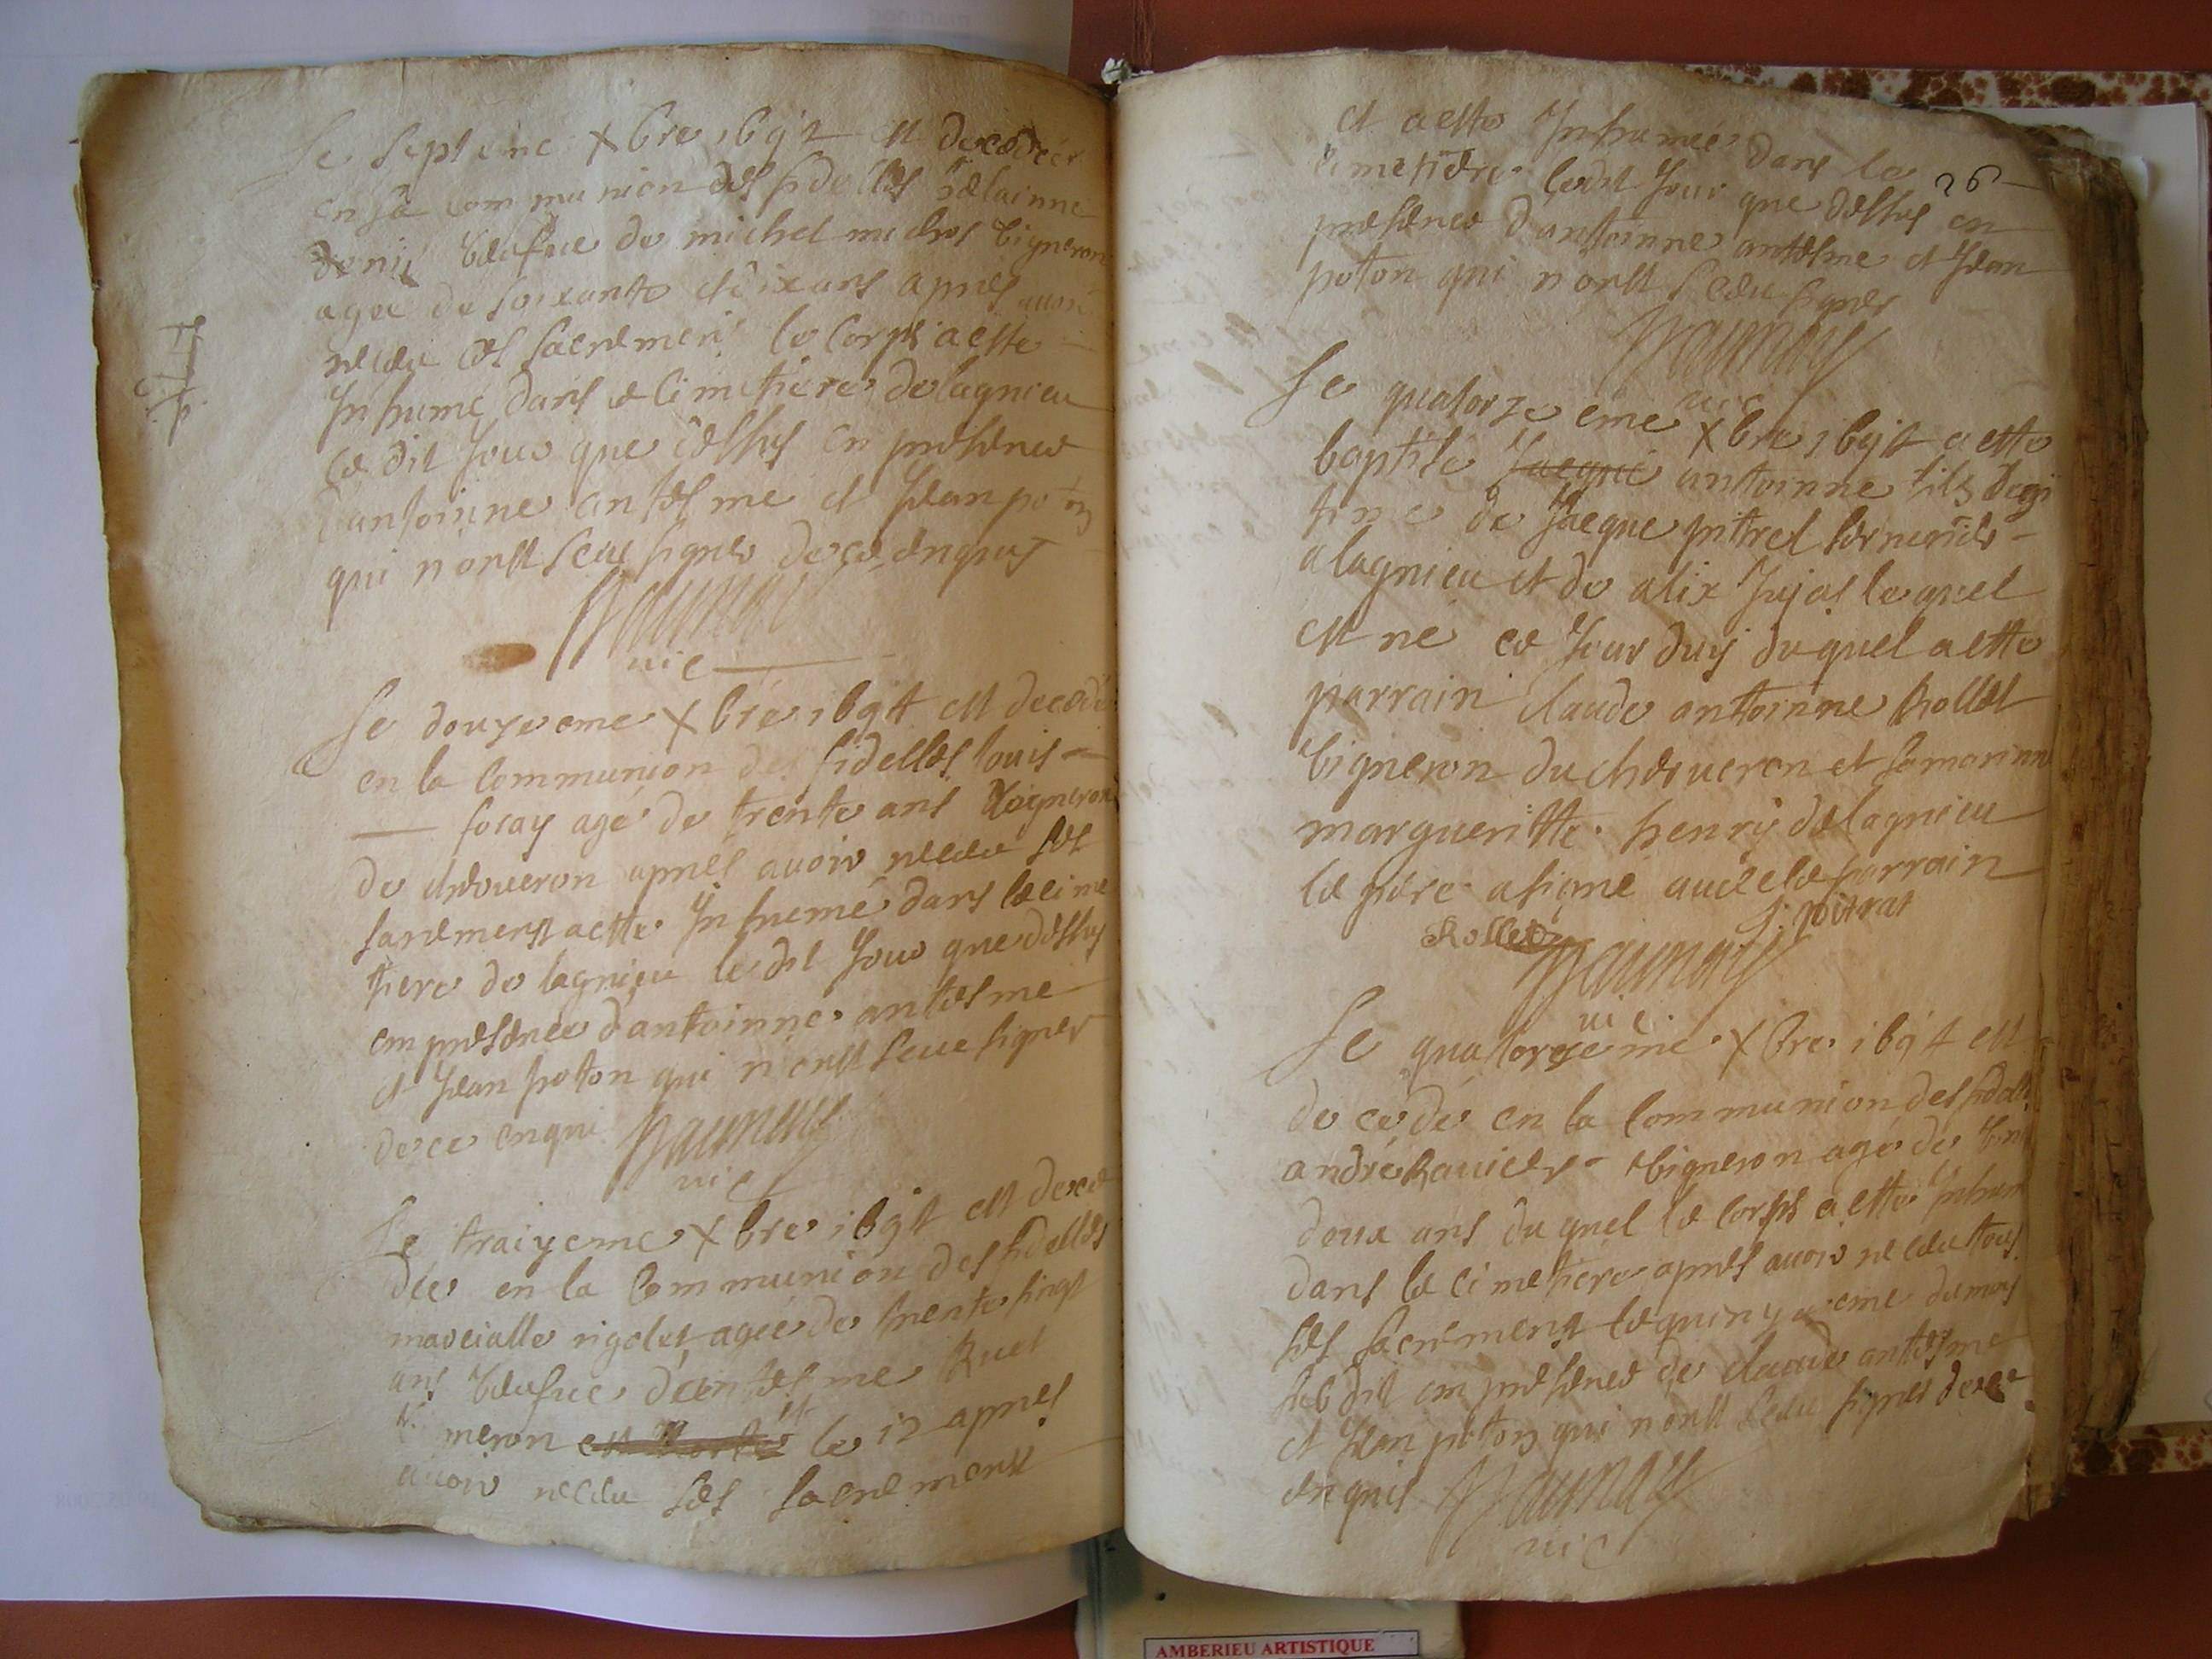 Le septieme Xbre 1694 est decedeé
en la communion des fidelles
denis veufue de michel vigneron
ageé de soixante dixans apres auoir
receu ses sacremens le corps a este
Inhumé dans le cimetiere de lagnieu
le dit Jour que dessus en presence
d'antoinne antesme et Jean poton
qui n'onst sceu signer de ce enquis
vic
Le douzeeme Xbre 1694 est decedé
en la communion des fidelles louis
foray agé de trente ans vigneron
de choueron apres auoir receu ses
sacremenst a este Inhumé dans le cime
tiere de lagnieu le dit Jour que dessus
em presence d'antoinne antesme
et Jean poton qui n'onst sceu signer
de ce enqui
vic
Le traizeme Xbre 1694 est dece
deé en la communion des fidelles
rigolet ageé de trente sinqt
ans veufue d'antesme Ruet
le 12 apres
auoir receu ses sacremenst
et a este Inhumeé dans le
cimetiere ledit Jour que dessus en
26
presence d'antoinne antesme et Jean
poton qui n'onst sceu signer
vic
Le quatorzeeme Xbre 1694 a este
baptisé Jacque antoinne fils legi
time de Jacque pitrat
a lagnieu et de alix Jujas lequel
est né ce Jourduy duquel a este
parrain claude antoinne Rollet
vigneron du choueron et sa marinne
margueritte henry de lagnieu
le pere a signé auec le parrain
Rollet J. pitrat
vic
Le quatorzeme Xbre 1694 est
decedé en la communion des fidelles
andré Rauier vigneron agé de
deux ans duquel le corps a este Inhum
dans le cimetiere apres auoir receu tous
ses sacremenst le quinzieme du mois
susdit em presence de claude antesme
et Jean poton qui n'onst sceu signer de ce
enquis
vic
AMBERIEU ARTISTIQUE